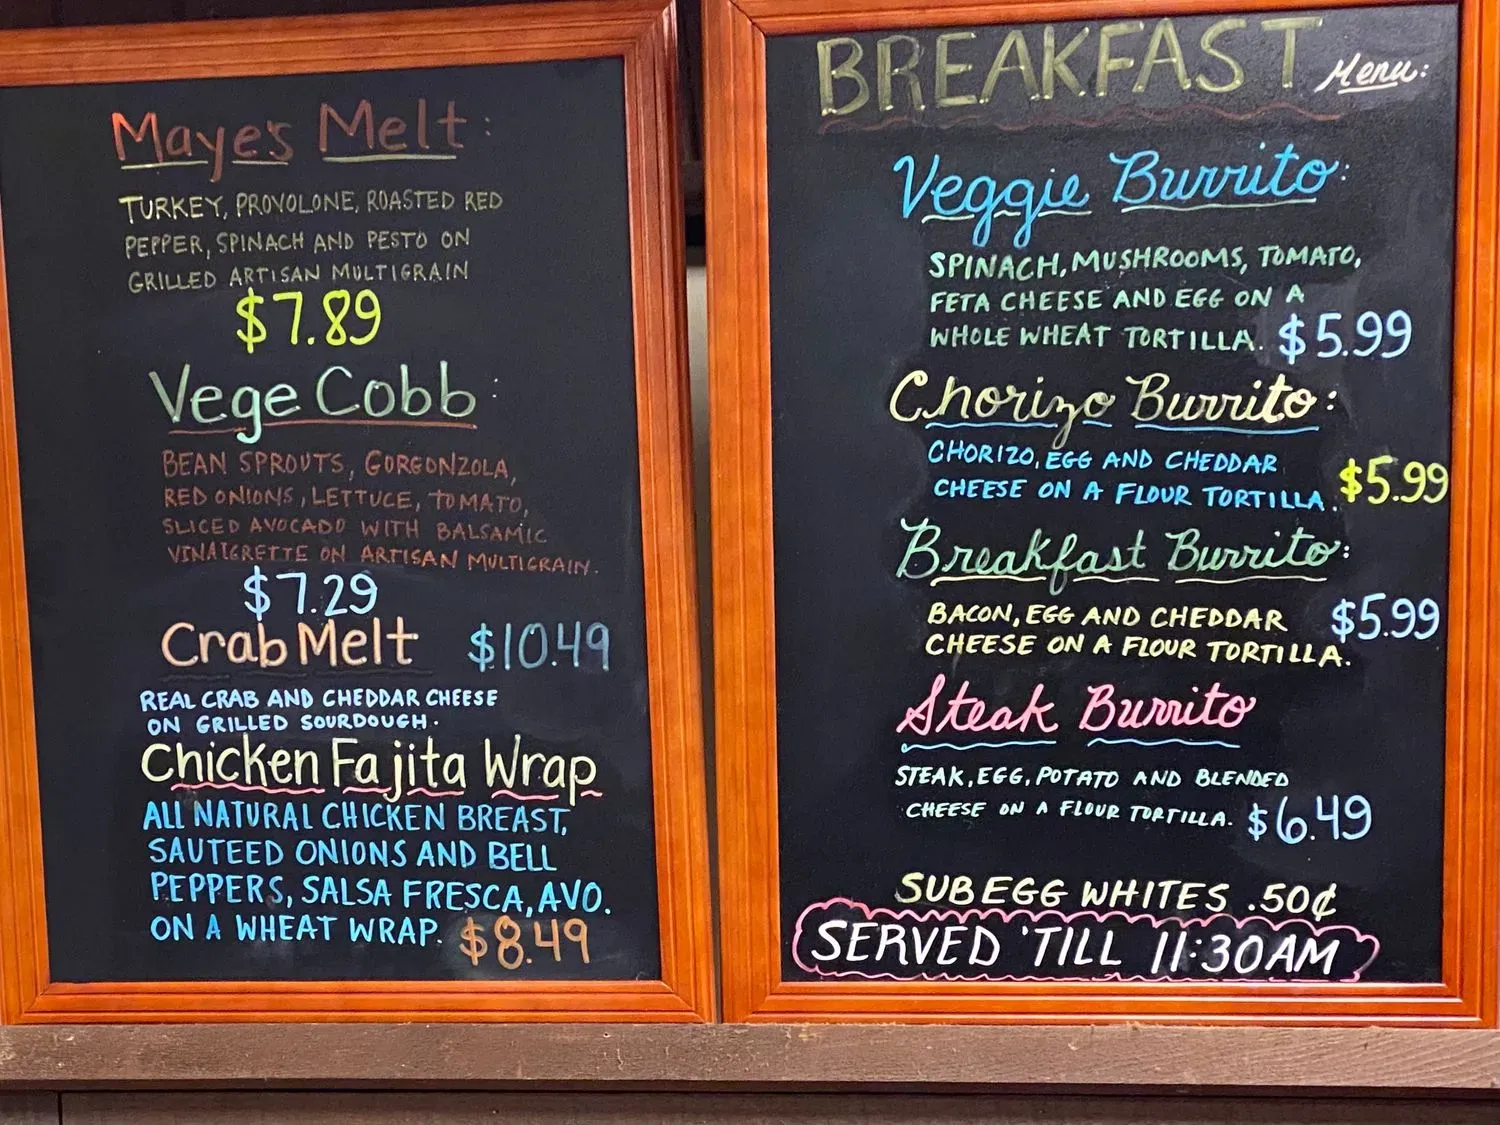 Maye's Melt:
TURKEY, PROVOLONE, ROASTED RED
PEPPER, SPINACH AND PESTO ON
GRILLED ARTISAN MULTIGRAIN
$7.89
Vege Cobb:
BEAN SPROUTS, GORGONZOLA,
RED ONIONS, LETTUCE, TOMATO,
SLICED AVOCADO WITH BALSAMIC
VINAIGRETTE ON ARTISAN MULTIGRAIN.
$7.29
Crab Melt $10.49
REAL CRAB AND CHEDDAR CHEESE
ON GRILLED SOURDOUGH.
Chicken Fajita Wrap
ALL NATURAL CHICKEN BREAST,
SAUTEED ONIONS AND BELL
PEPPERS, SALSA FRESCA, AVO.
ON A WHEAT WRAP. $8.49
BREAKFAST Menu:
Veggie Burrito:
SPINACH, MUSHROOMS, TOMATO,
FETA CHEESE AND EGG ON A
WHOLE WHEAT TORTILLA. $5.99
Chorizo Burrito:
CHORIZO, EGG AND CHEDDAR
CHEESE ON A FLOUR TORTILLA. $5.99
Breakfast Burrito:
BACON, EGG AND CHEDDAR $5.99
CHEESE ON A FLOUR TORTILLA.
Steak Burrito
STEAK, EGG, POTATO AND BLENDED
CHEESE ON A FLOUR TORTILLA. $6.49
SUB EGG WHITES .50¢
SERVED 'TILL 11:30AM